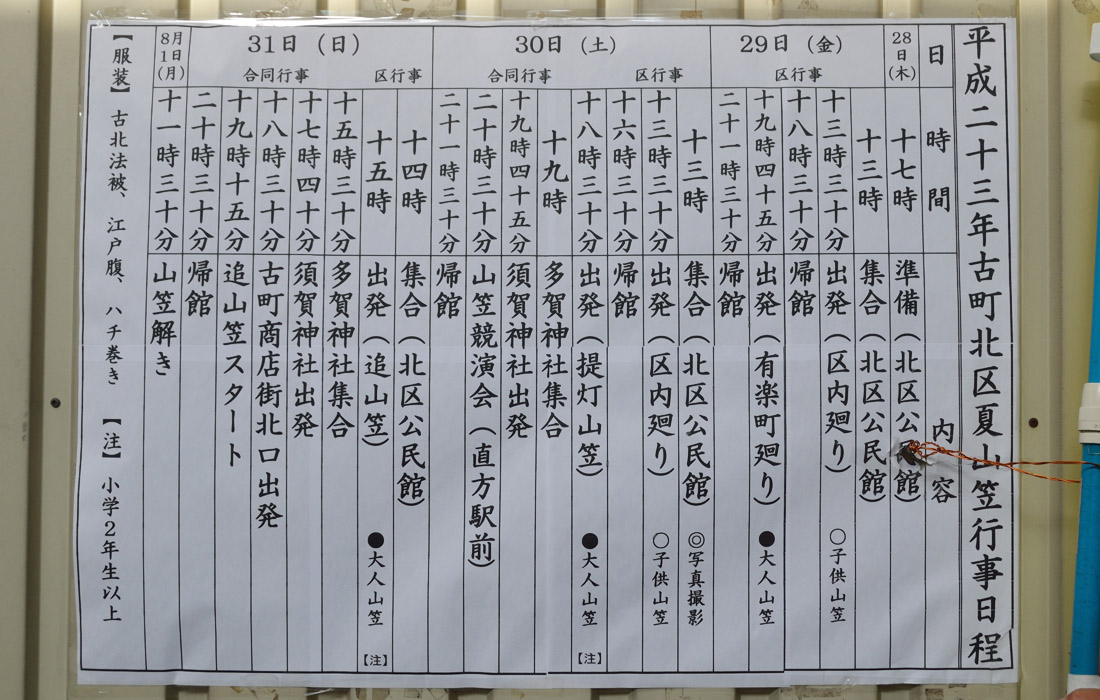 平成二十三年古町北区夏山笠行事日程
日 時間 内容
28日(木) 十七時 準備(北区公民館)
29日(金)
区行事
十三時 集合(北区公民館)
十三時三十分 出発(区内廻り) ○子供山笠
十八時三十分 帰館
十九時四十五分 出発(有楽町廻り) ●大人山笠
二十一時三十分 帰館
30日(土)
区行事
十三時 集合(北区公民館) ◎写真撮影
十三時三十分 出発(区内廻り) ○子供山笠
十六時三十分 帰館
十八時三十分 出発(提灯山笠) ●大人山笠 【注】
合同行事
十九時 多賀神社集合
十九時四十五分 須賀神社出発
二十時三十分 山笠競演会(直方駅前)
二十一時三十分 帰館
31日(日)
区行事
十四時 集合(北区公民館)
十五時 出発(追山笠) ●大人山笠 【注】
合同行事
十五時三十分 多賀神社集合
十七時四十分 須賀神社出発
十八時三十分 古町商店街北口出発
十九時十五分 追山笠スタート
二十時三十分 帰館
8月1日(月) 十一時三十分 山笠解き
【服装】 古北法被、江戸腹、ハチ巻き 【注】 小学2年生以上